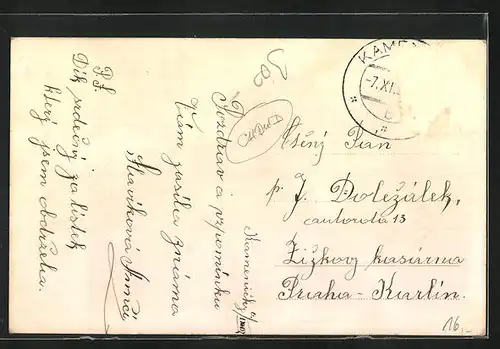 P.S.
Dík srdečný za lístek
který jsem obdržela.
Pozdrav a vzpomínku
Vám zasílá známa
Slavíková
Kamenický
KAM
-7.XI.
Ctěný Pan
p. J. Doležálek,
autorota 13
Žižkovy kasárna
Praha-Karlín.
16,-